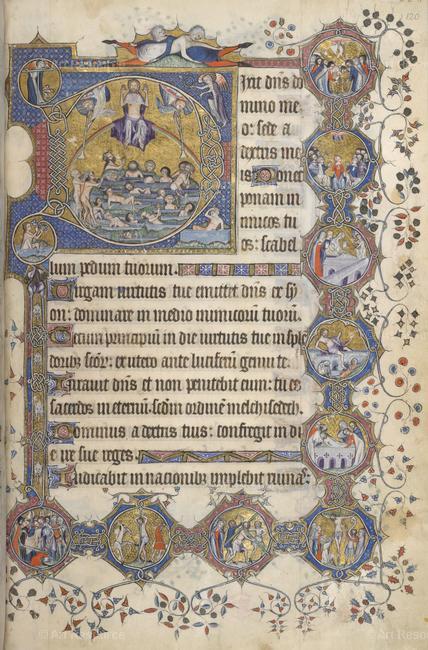 120
Dixit dns do
mino me
o: sede a
dextris me
is Donec
ponam in
imicos tu
os: scabel
lum pedum tuorum.
Virgam virtutis tue emittet dns ex sy
on: dominare in medio inimicorum tuorum.
Tecum principium in die virtutis tue in sple
doribus scor: ex utero ante luciferum genui te.
Iuravit dns et non penitebit eum: tu es
sacerdos in eternum. scdm ordine melchisedech.
Dominus a dextris tuis: confregit in di
e ire sue reges.
Iudicabit in nacionibus implebit ruinas:
© Art Resource
© Art Reso